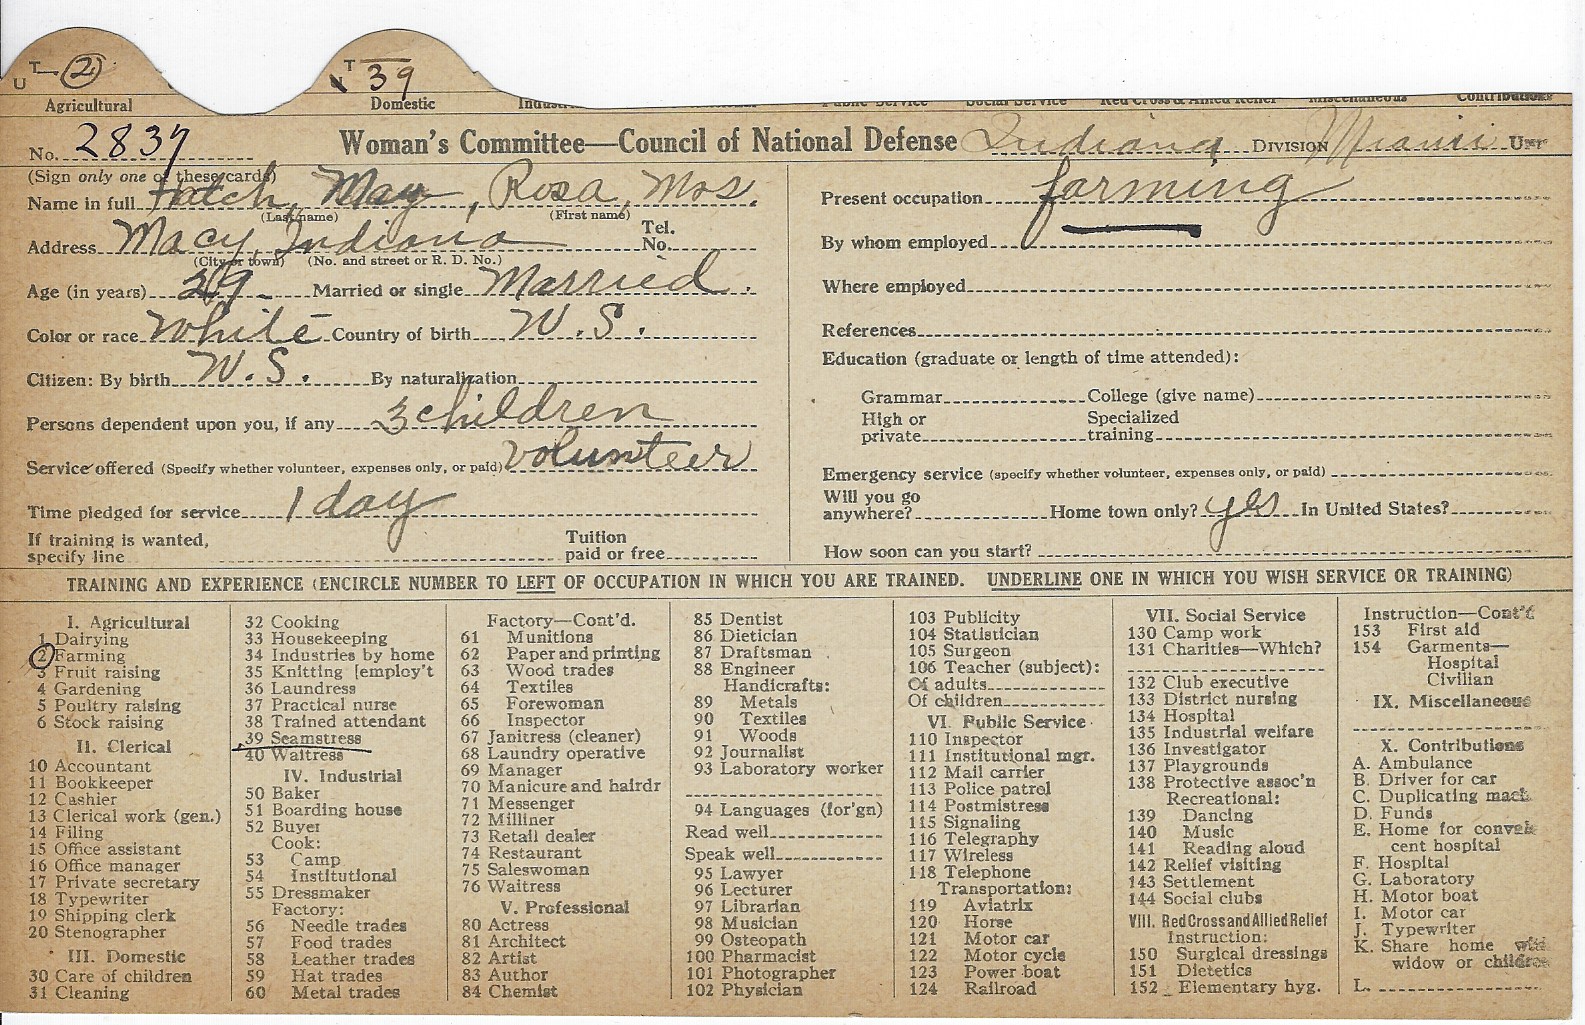 T
U (2)
T
N 39
Agricultural Domestic Public Service Social Service Red Cross & Allied Relief Miscellaneous Contributions
No. 2837 Woman's Committee—Council of National Defense Indiana Division Miami Unit
(Sign only one of these cards)
Name in full Hatch, May, Rosa, Mrs.
(Last name) (First name)
Address Macy, Indiana Tel. No.
(City or town) (No. and street or R. D. No.)
Age (in years) Married or single Married.
Color or race White Country of birth U.S.
Citizen: By birth U.S. By naturalization
Persons dependent upon you, if any 3 children
Service offered (Specify whether volunteer, expenses only, or paid) volunteer
Time pledged for service 1 day
If training is wanted, specify line Tuition paid or free
Present occupation farming
By whom employed
Where employed
References
Education (graduate or length of time attended):
Grammar College (give name)
High or private Specialized training
Emergency service (specify whether volunteer, expenses only, or paid)
Will you go anywhere? Home town only? yes In United States?
How soon can you start?
TRAINING AND EXPERIENCE (ENCIRCLE NUMBER TO LEFT OF OCCUPATION IN WHICH YOU ARE TRAINED. UNDERLINE ONE IN WHICH YOU WISH SERVICE OR TRAINING)
I. Agricultural
1 Dairying
2 Farming
3 Fruit raising
4 Gardening
5 Poultry raising
6 Stock raising
II. Clerical
10 Accountant
11 Bookkeeper
12 Cashier
13 Clerical work (gen.)
14 Filing
15 Office assistant
16 Office manager
17 Private secretary
18 Typewriter
19 Shipping clerk
20 Stenographer
III. Domestic
30 Care of children
31 Cleaning
32 Cooking
33 Housekeeping
34 Industries by home
35 Knitting [employ't
36 Laundress
37 Practical nurse
38 Trained attendant
39 Seamstress
40 Waitress
IV. Industrial
50 Baker
51 Boarding house
52 Buyer
Cook:
53 Camp
54 Institutional
55 Dressmaker
Factory:
56 Needle trades
57 Food trades
58 Leather trades
59 Hat trades
60 Metal trades
Factory—Cont'd.
61 Munitions
62 Paper and printing
63 Wood trades
64 Textiles
65 Forewoman
66 Inspector
67 Janitress (cleaner)
68 Laundry operative
69 Manager
70 Manicure and hairdr
71 Messenger
72 Milliner
73 Retail dealer
74 Restaurant
75 Saleswoman
76 Waitress
V. Professional
80 Actress
81 Architect
82 Artist
83 Author
84 Chemist
85 Dentist
86 Dietician
87 Draftsman
88 Engineer
Handicrafts:
89 Metals
90 Textiles
91 Woods
92 Journalist
93 Laboratory worker
94 Languages (for'gn)
Read well
Speak well
95 Lawyer
96 Lecturer
97 Librarian
98 Musician
99 Osteopath
100 Pharmacist
101 Photographer
102 Physician
103 Publicity
104 Statistician
105 Surgeon
106 Teacher (subject):
Of adults
Of children
VI. Public Service
110 Inspector
111 Institutional mgr.
112 Mail carrier
113 Police patrol
114 Postmistress
115 Signaling
116 Telegraphy
117 Wireless
118 Telephone
Transportation:
119 Aviatrix
120 Horse
121 Motor car
122 Motor cycle
123 Power boat
124 Railroad
VII. Social Service
130 Camp work
131 Charities—Which?
132 Club executive
133 District nursing
134 Hospital
135 Industrial welfare
136 Investigator
137 Playgrounds
138 Protective assoc'n
Recreational:
139 Dancing
140 Music
141 Reading aloud
142 Relief visiting
143 Settlement
144 Social clubs
VIII. Red Cross and Allied Relief
Instruction:
150 Surgical dressings
151 Dietetics
152 Elementary hyg.
Instruction—Cont'd
153 First aid
154 Garments—
Hospital
Civilian
IX. Miscellaneous
X. Contributions
A. Ambulance
B. Driver for car
C. Duplicating mach.
D. Funds
E. Home for convales
cent hospital
F. Hospital
G. Laboratory
H. Motor boat
I. Motor car
J. Typewriter
K. Share home with
widow or children
L.